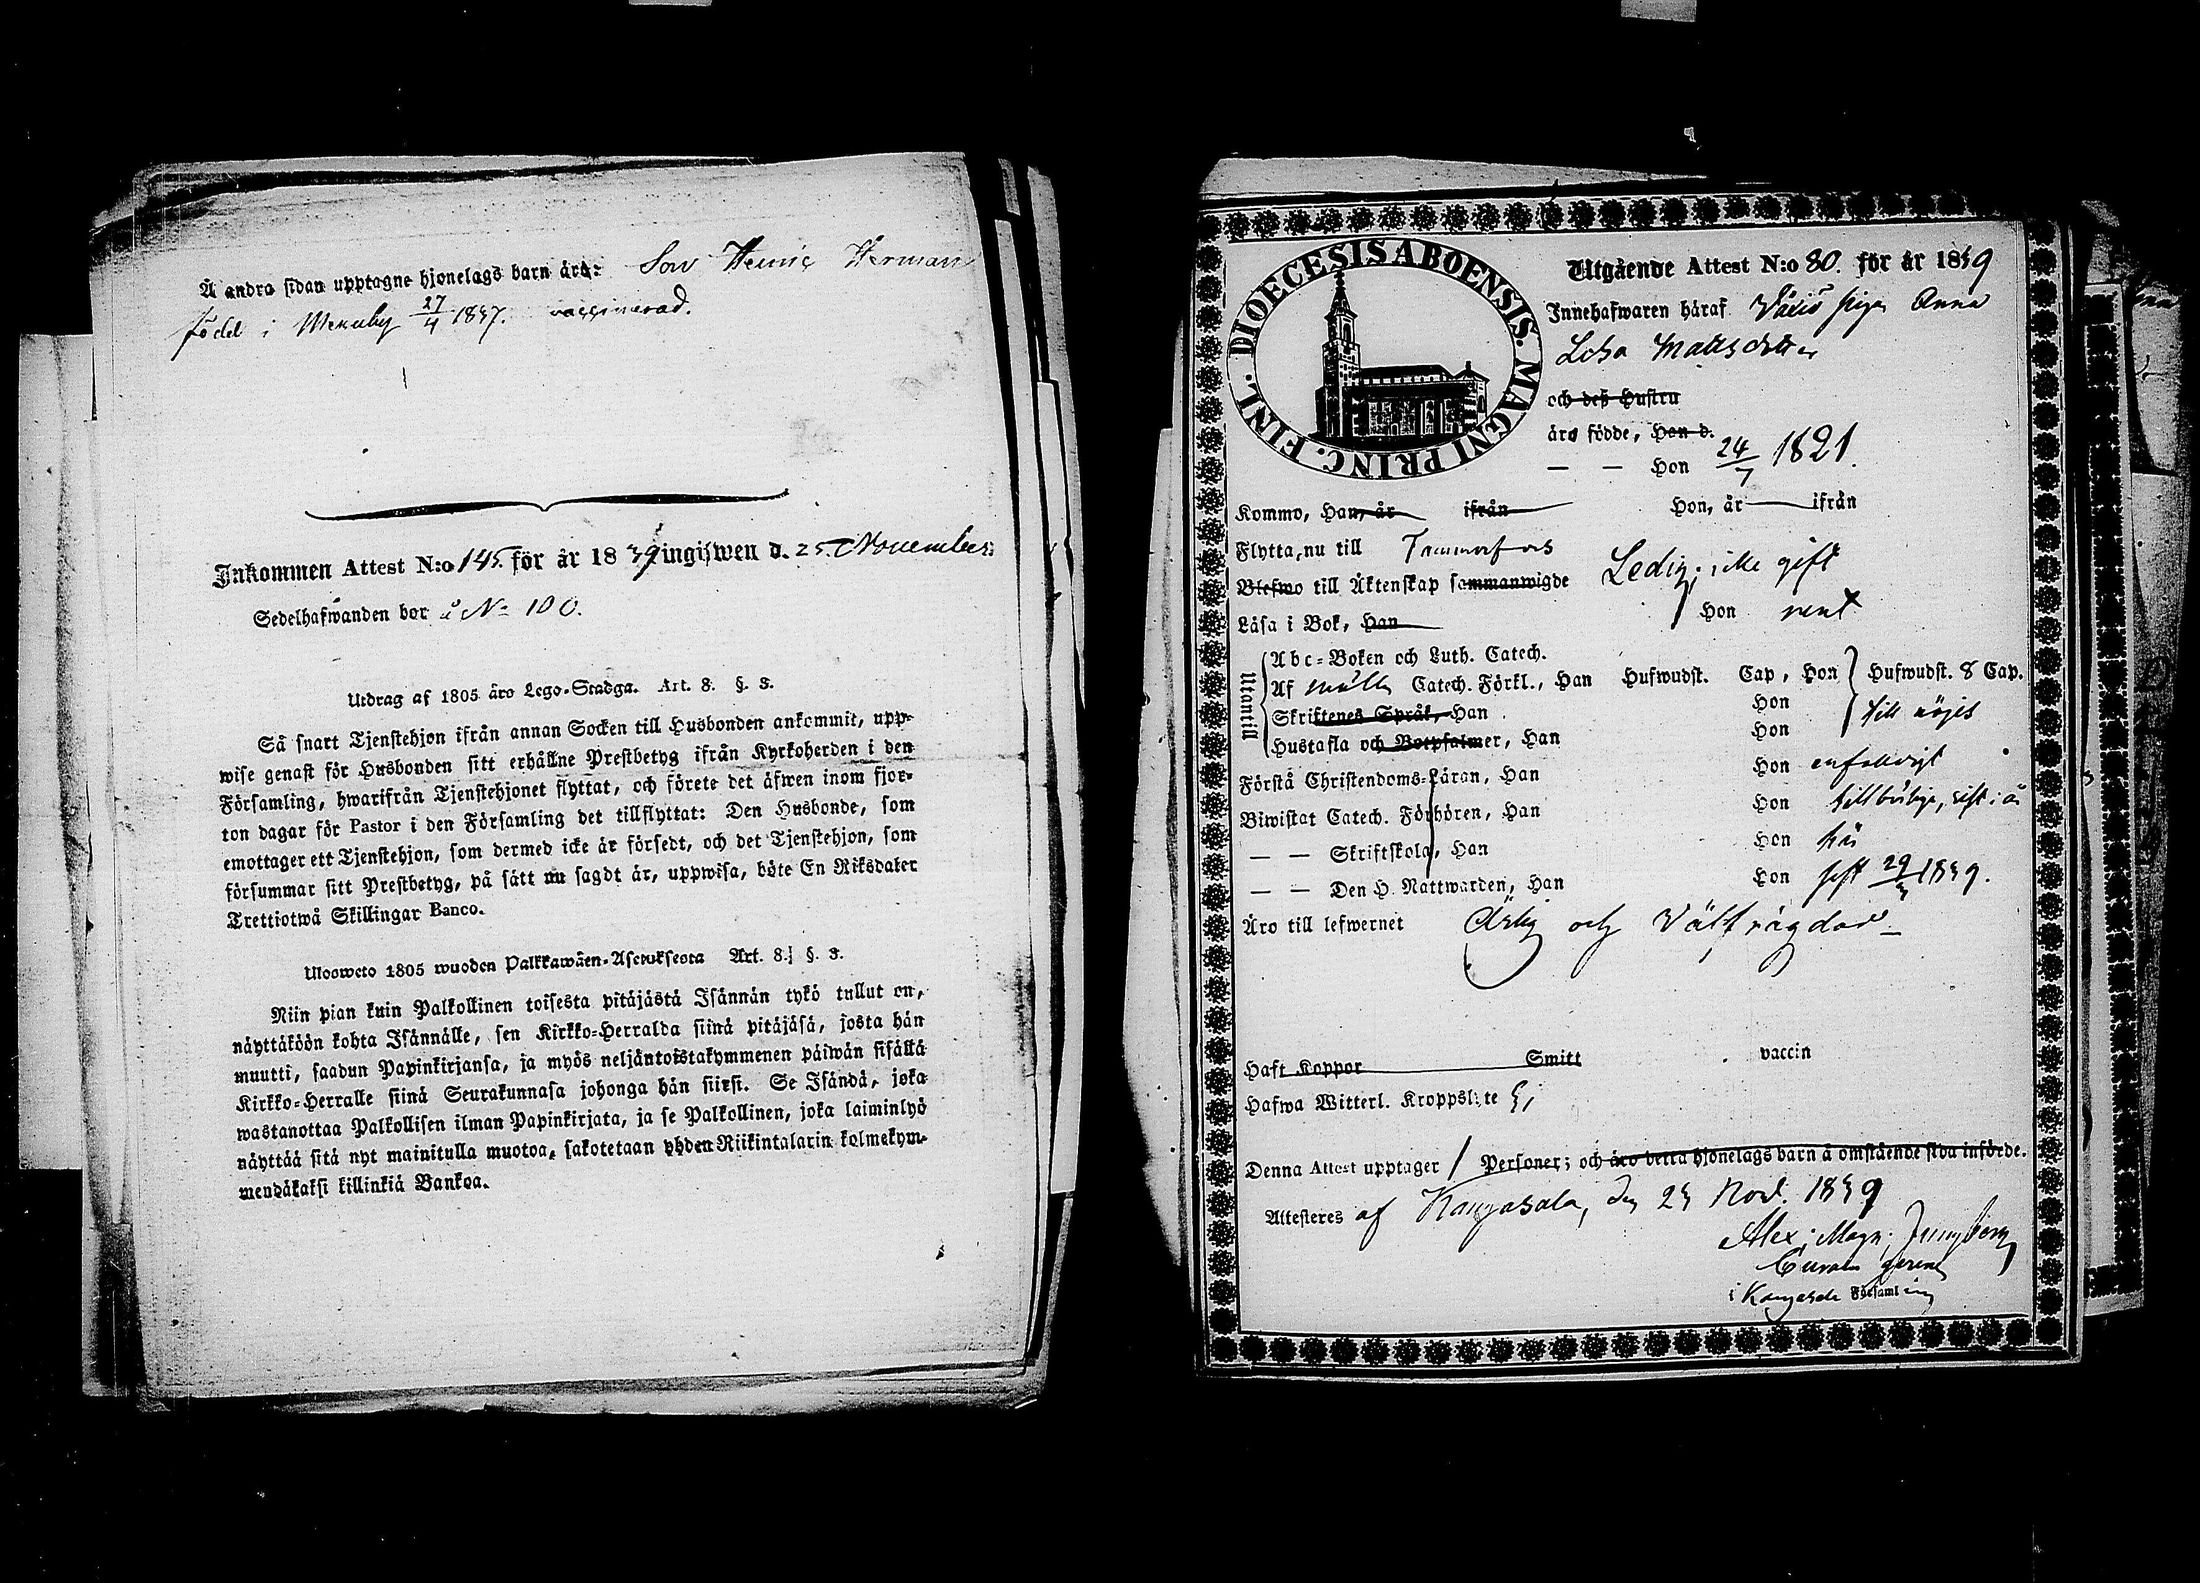 Å andra sidan upptagne hjonelags barn äro: Son Herman
född i 27/4 1837. vaccinerad.
Inkommen Attest N:o 145. för år 1839 ingifwen d. 25 November
Sedelhafwanden bor å No 100.
Utdrag af 1805 års Lego-Stadga. Art. 8. §. 3.
Så snart Tjenstehjon ifrån annan Socken till Husbonden ankommit, upp-
wise genast för Husbonden sitt erhållne Prestbetyg ifrån Kyrkoherden i den
Församling, hwarifrån Tjenstehjonet flyttat, och förete det äfwen inom fjor-
ton dagar för Pastor i den Församling det tillflyttat: Den Husbonde, som
emottager ett Tjenstehjon, som dermed icke är försedt, och det Tjenstehjon, som
försummar sitt Prestbetyg, på sätt nu sagdt är, uppwisa, böte En Riksdaler
Trettiotwå Skillingar Banco.
Ulosweto 1805 wuoden Palkkawäen-Asetuksesta Art. 8. §. 3.
Niin pian kuin Palkollinen toisesta pitäjästä Isännän tykö tullut on,
näyttäköön kohta Isännälle, sen Kirkko-Herralda siinä pitäjäsä, josta hän
muutti, saadun Papinkirjansa, ja myös neljäntoistakymmenen päiwän sisällä
Kirkko-Herralle siinä Seurakunnasa johonga hän siirsi. Se Isändä, joka
wastanottaa Palkollisen ilman Papinkirjata, ja se Palkollinen, joka laiminlyö
näyttää sitä nyt mainitulla muotoa, sakotetaan yhden Riikintalarin kolmekym-
mendäkaksi killinkiä Bankoa.
DIOECESIS ABOENSIS. MAGNI PRINC. FINL.
Utgående Attest N:o 80. för år 1839
Innehafwaren häraf piga Anna
Lisa Mattsdotter
och deß Hustru
äro födde, Han d.
— — Hon 24/7 1821.
Kommo, Han, år ifrån Hon, år ifrån
Flytta nu till Tammerfors
Blefwo till Äktenskap sammanwigde Ledig; icke gift
Läsa i Bok, Han Hon rent
Utantill
Abc-Boken och Luth. Catech.
Af Catech. Förkl., Han Hufwudst. Cap, Hon Hufwudst. & Cap.
Skriftenes Språk, Han Hon till nöjes
Hustafla och Botpsalmer, Han Hon
Förstå Christendoms-Läran, Han Hon enfaldigt
Biwistat Catech. Förhören, Han Hon
— — Skriftskola, Han Hon här
— — Den H. Nattwarden, Han Hon sist 1839.
Äro till lefwernet Ärlig och Välfrägdad
Haft Koppor Smitt vaccin
Hafwa Witterl. Kroppslyte Ej
Denna Attest upptager 1 Personer; och äro detta hjonelags barn å omstående sida införde.
Attesteras af Kangasala, den 23 Nov. 1839
Alex. Magn. Jungberg
i Kangasala Församling